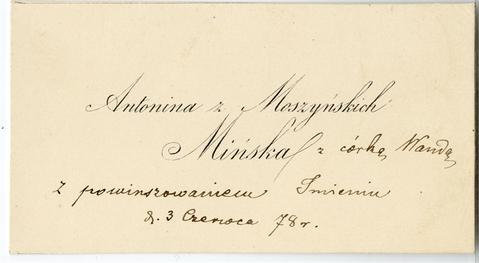 Antonina z Moszyńskich
Mińska z córką Wandą
z powinszowaniem Imienin
d. 3 Czerwca 78 r.